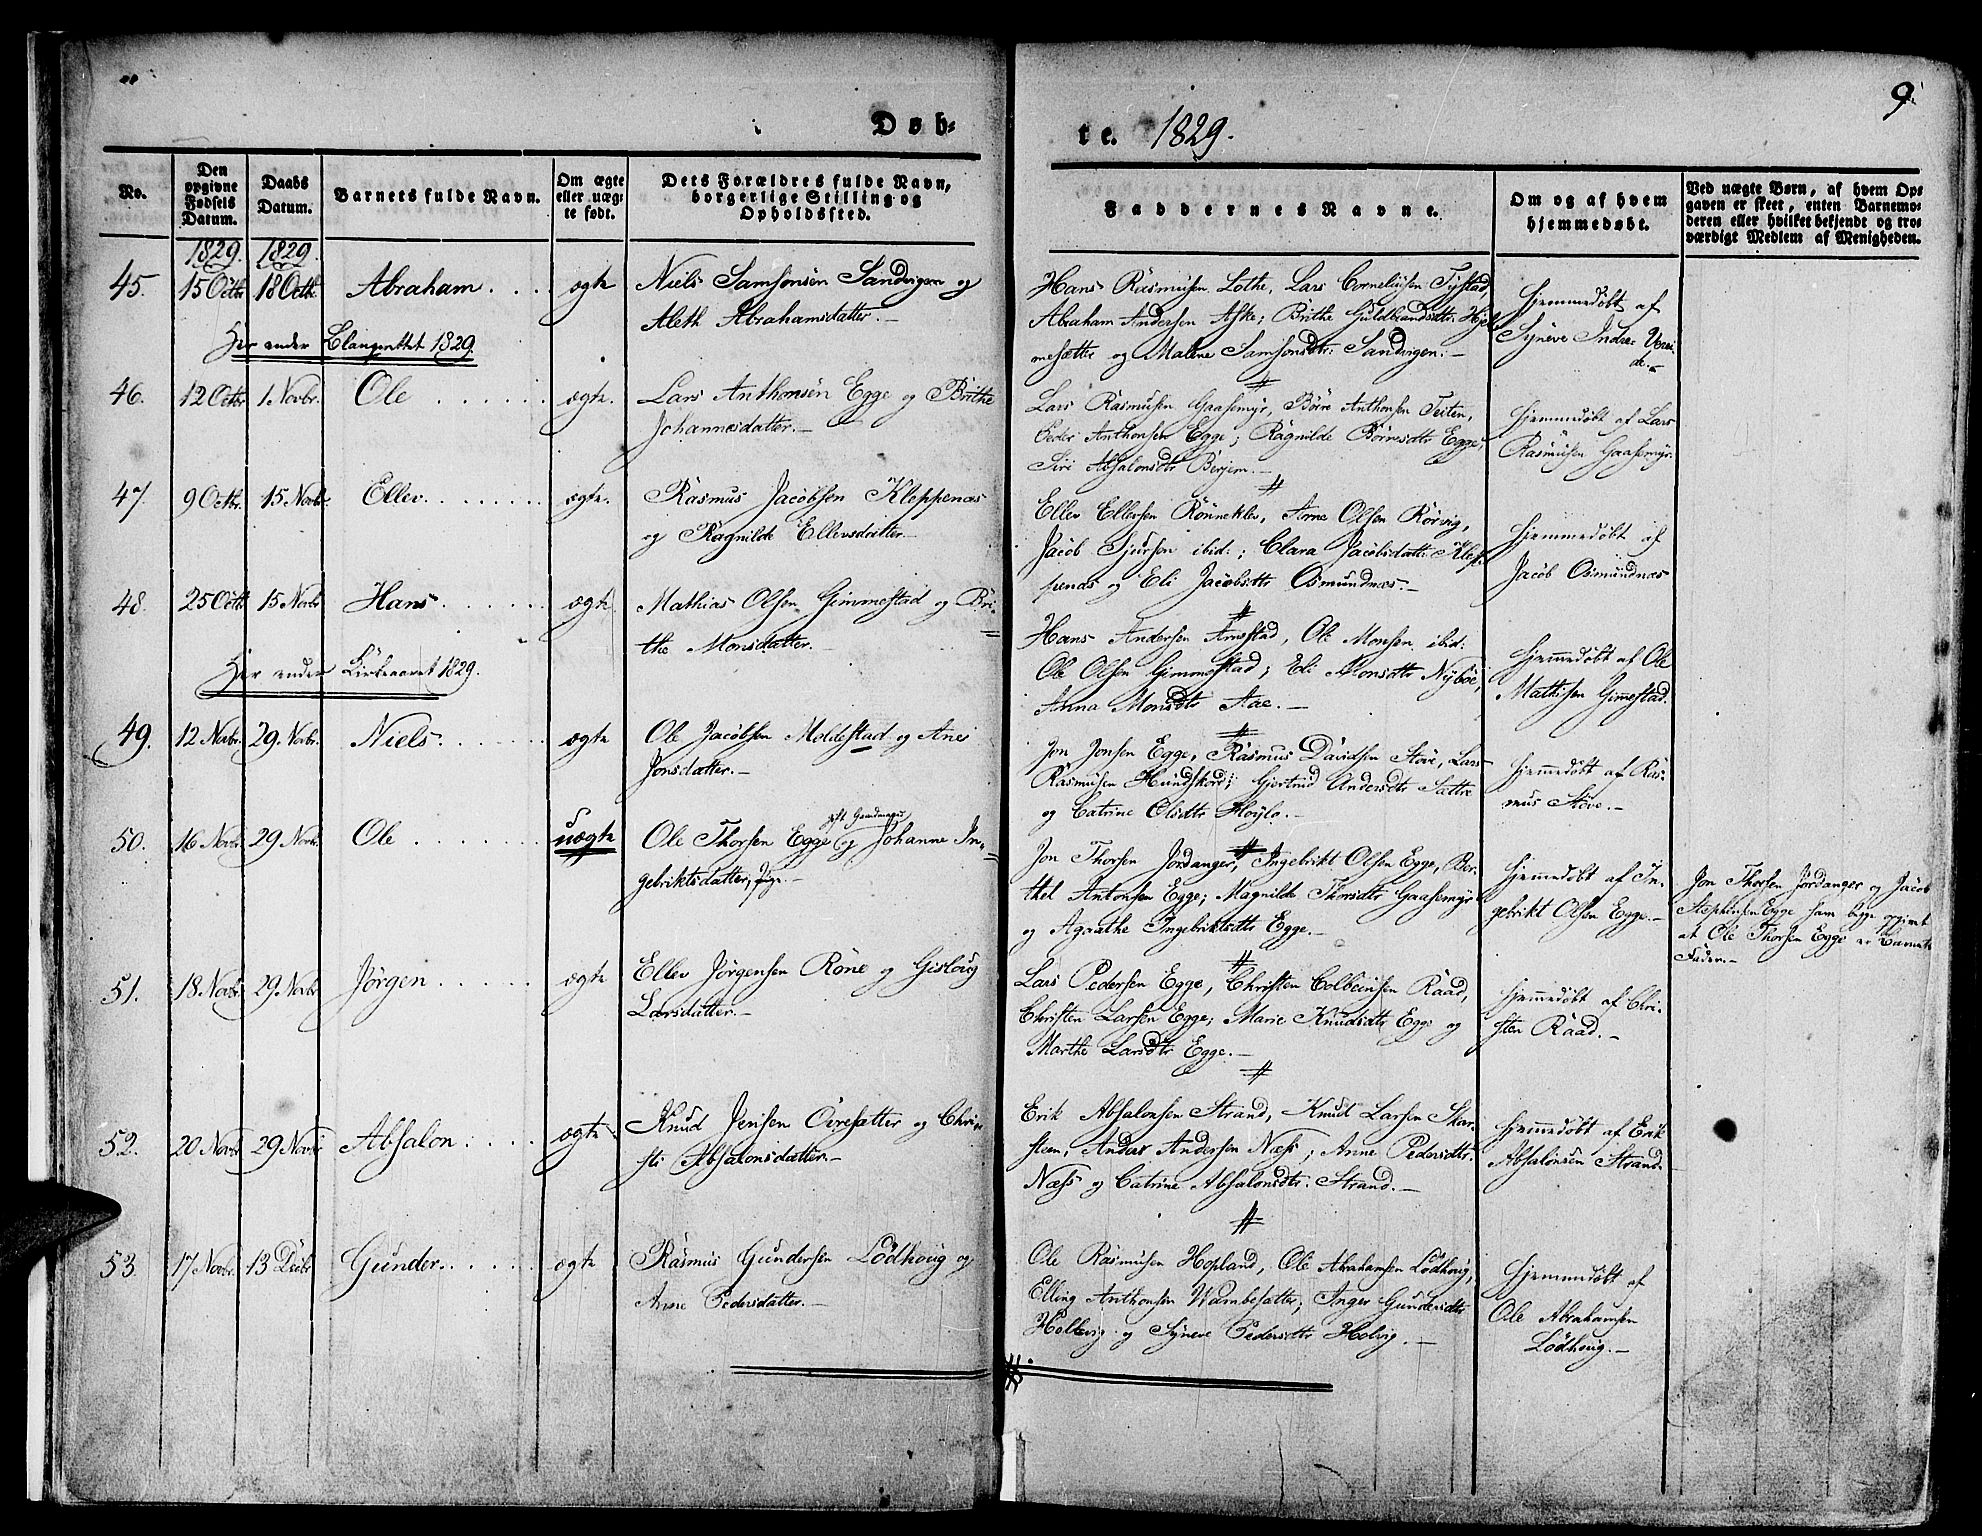 9.
Døb-
te. 1829.
No.
Den opgivne Fødsels Datum.
Daabs Datum.
Barnets fulde Navn.
Om ægte eller uægte født.
Dets Forældres fulde Navn, borgerlige Stilling og Opholdssted.
Faddernes Navne.
Om og af hvem hjemmedøbt.
Ved uægte Børn, af hvem Opgaven er skeet, enten Barnemoderen eller hvilket bekjendt og troværdigt Medlem af Menigheden.
1829. 1829.
45. 15 Octbr 18 Octbr. Abraham ægte
Niels Samsonsen Sandvigen og
Aleth Abrahamsdatter.-
Hans Rasmusen Lothe, Lars Corneliusen Tystad,
Abraham Andersen Aske; Brithe Guldbrandsdtr: Hjel-
mesætter og Malene Samsonsdtr: Sandvigen.-
Hjemmedøbt af
Syneve Indre Verei-
de.-
Her ender 1829.
46. 12 Octbr 1 Novbr. Ole ægte.
Lars Anthonsen Egge og Brithe
Johannesdatter.-
Lars Rasmusen Gaasemyr, Börre Anthonsen Teiten,
Peder Anthonsen Egge; Ragnilde Börresdtr Egge,
Siri Absalonsdtr Berjem.-
Hjemmedøbt af Lars
Rasmusen Gaasemyr.
47. 9 Octbr. 15 Novbr. Ellev ægte.
Rasmus Jacobsen Kleppenæs
og Ragnilde Ellevsdatter-
Ellev Ellevsen Rönneklev, Arne Olsen Rörvig,
Jacob Sjursen ibid:; Clara Jacobsdatr: Klep-
penæs og Eli Jacobsdtr Osmundnæs.-
Hjemmedøbt af
Jacob Osmundnæs
48. 25 Octbr 15 Novbr Hans ægte.
Mathias Olsen Gimmestad og Bri-
the Monsdatter.-
Hans Andersen Arnestad, Ole Monsen ibid:
Ole Olsen Gimmestad; Eli Monsdtr Nyböe,
Anna Monsdtr Aae.-
Hjemmedøbt af Ole
Mathisen Gimmestad.
Her ender Kirkeaaret 1829.
49. 12 Novbr. 29. Novbr. Niels ægte
Ole Jacobsen Moldestad og Anes
Jonsdatter.-
Jon Jonsen Egge, Rasmus Davidsen Støve, Lars
Rasmusen Hundskord; Gjertrud Andersdtr Sættre
og Catrine Olsdtr Höylo.-
Hjemmedøbt af Ras-
mus Støve.-
50. 16 Novbr. 29 Novbr. Ole uægte
Ole Thorsen Egge gift Gaardmand og Johanne In-
gebriktsdatter, Pige.-
Jon Thorsen Jordanger, Ingebrikt Olsen Egge, Ber-
thel Antonsen Egge; Magnilde Thorsdtr Gaasemyr
og Agathe Ingebriktsdtr Egge.-
Hjemmedøbt af In-
gebrikt Olsen Egge.-
Jon Thorsen Jordanger og Jacob
Stephensen Egge som begge opgivet
at Ole Thorsen Egge er Barnets
Fader.-
51. 18 Novbr. 29 Novbr Jörgen ægte
Ellev Jörgensen Röne og Gislaug
Larsdatter.-
Lars Pedersen Egge, Christen Colbeinsen Raad,
Christen Larsen Egge; Marie Knudsdtr Egge og
Marthe Larsdtr Egge.-
Hjemmedøbt af Chri-
sten Raad.-
52. 20 Novbr 29 Novbr Absalon ægte
Knud Jensen Övresætter og Chri-
sti Absalonsdatter.-
Erik Absalonsen Strand, Knud Larsen Skar-
steen, Anders Andersen Næss; Anne Pedersdtr.
Næss og Catrine Absalonsdtr: Strand.-
Hjemmedøbt af Erik
Absalonsen Strand.
53. 17 Novbr. 13 Decbr Gunder ægte
Rasmus Gundersen Lödhoug og
Anne Pedersdatter.-
Ole Rasmusen Hopland, Ole Abrahamsen Lödhoug,
Elling Anthonsen Wambesætter; Inger Gundersdtr
Hollevig og Syneve Pedersdtr Holvig.-
Hjemmedøbt af
Ole Abrahamsen
Lödhoug.-